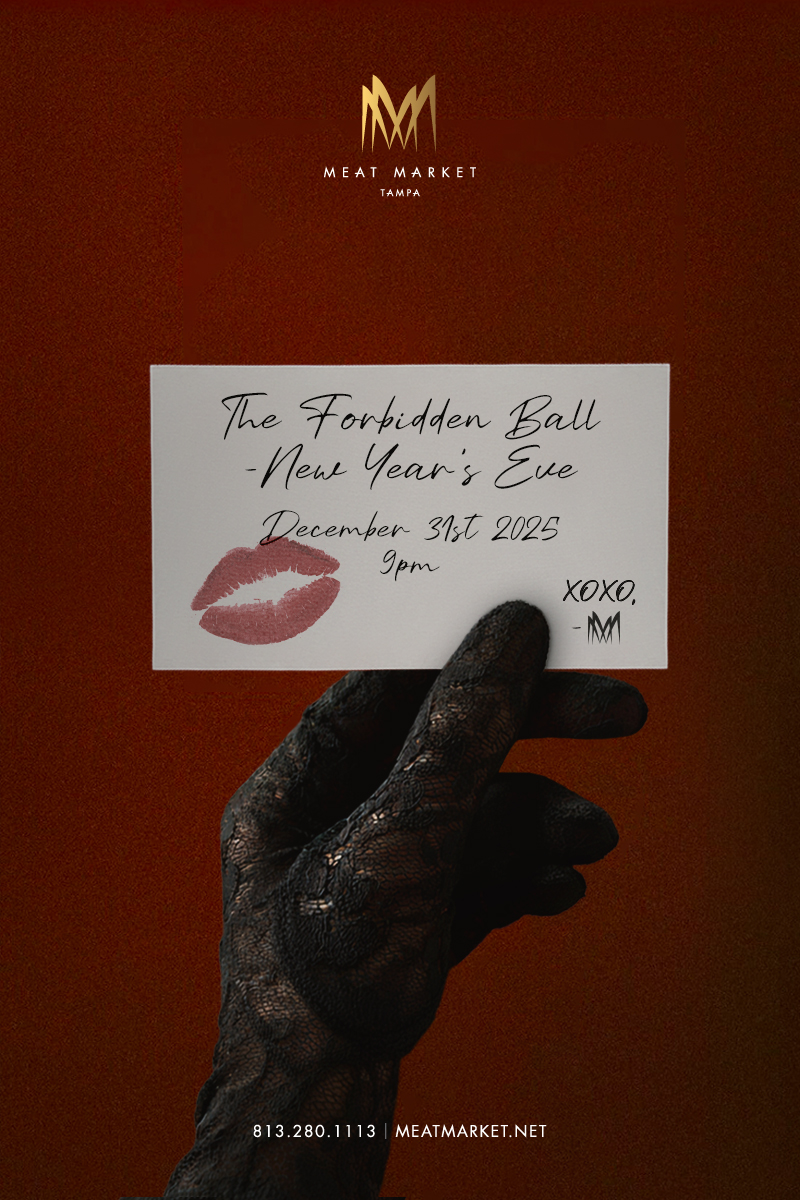 MEAT MARKET
TAMPA
The Forbidden Ball
-New Year's Eve
December 31st 2025
9pm
XOXO,
-MM
813.280.1113 | MEATMARKET.NET